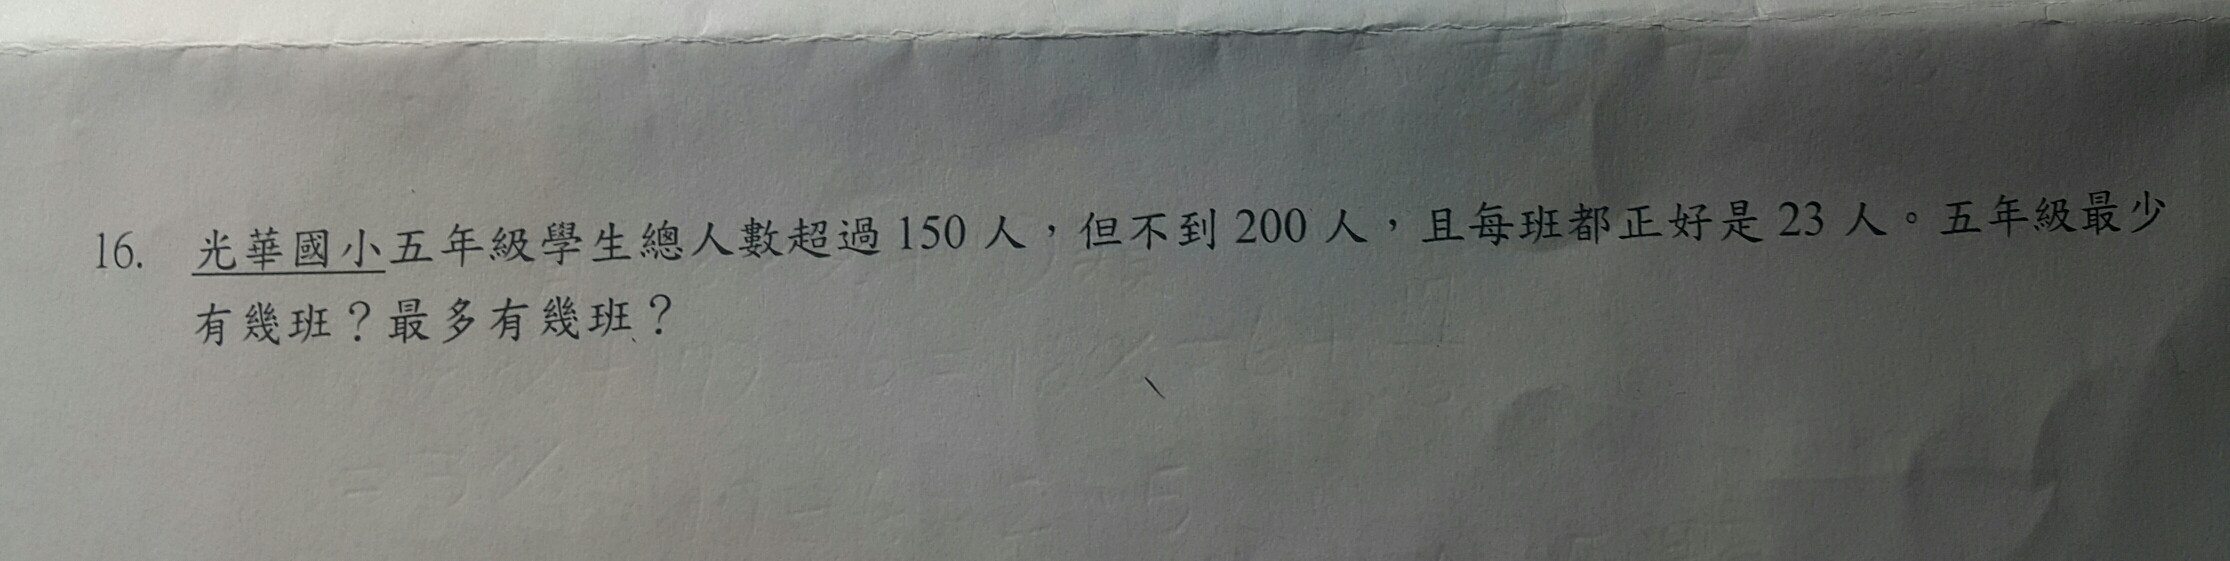 16. 光華國小五年級學生總人數超過 150 人，但不到 200 人，且每班都正好是 23 人。五年級最少
有幾班？最多有幾班？